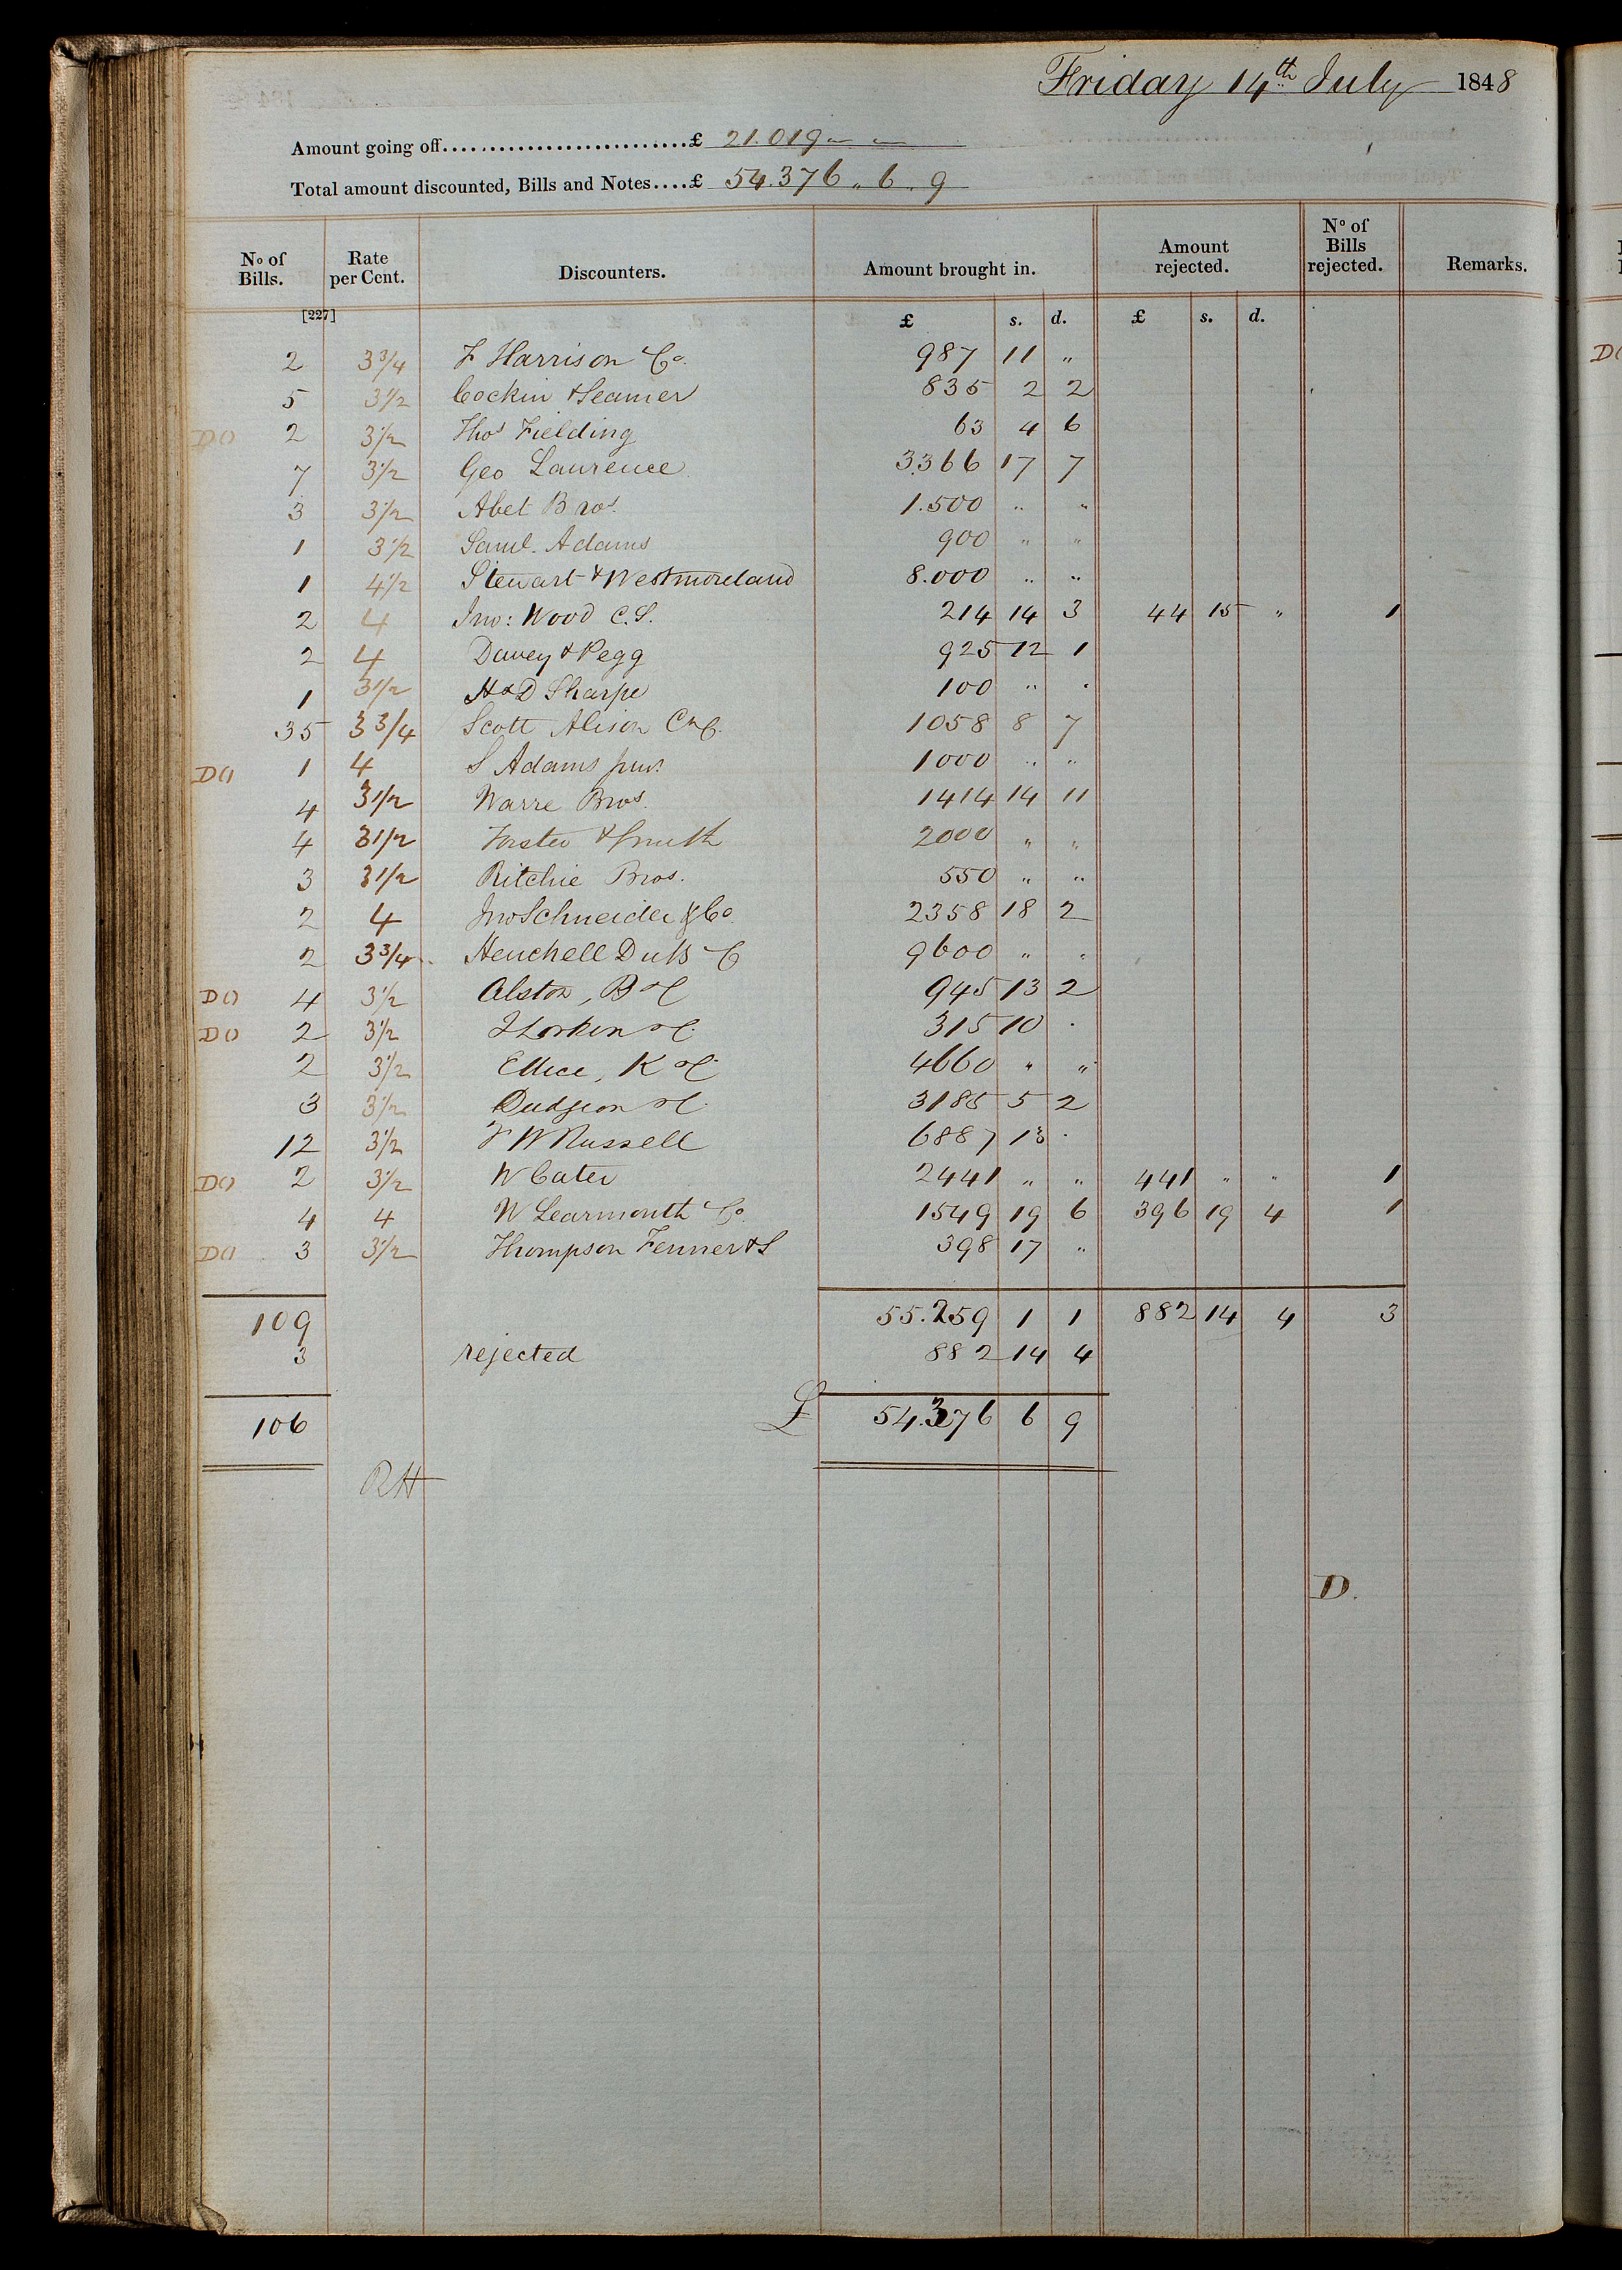 Friday 14th July 1848
Amount going off..........................£ 21.019 — —
Total amount discounted, Bills and Notes....£ 54.376 .. 6 . 9
No of Bills. Rate per Cent. Discounters. Amount brought in. Amount rejected. No of Bills rejected. Remarks.
[227] £ s. d. £ s. d.
2 3 3/4 F Harrison & Co. 987 11 "
5 3 1/2 Cockin & Seamer 835 2 2
DO 2 3 1/2 Thos Fielding 63 4 6
7 3 1/2 Geo Laurence 3.366 17 7
3 3 1/2 Abel Bros. 1.500 " "
1 3 1/2 Saml. Adams 900 " "
1 4 1/2 Stewart & Westmoreland 8.000 " "
2 4 Jno: Wood C.S. 214 14 3 44 15 " 1
2 4 Davey & Pegg 925 12 1
1 3 1/2 H & D Sharpe 100 " "
35 3 3/4 Scott Alison 1058 8 7
DO 1 4 S Adams junr. 1000 " "
4 3 1/2 Warre Bros. 1414 14 11
4 3 1/2 Forster & Smith 2000 " "
3 3 1/2 Ritchie Bros. 550 " "
2 4 Jno Schneider & Co 2358 18 2
2 3 3/4 Henchell 9600 " "
DO 4 3 1/2 Alston, B & C 945 13 2
DO 2 3 1/2 315 10 .
2 3 1/2 Ellice, K & C 4660 " "
3 3 1/2 Dudgeon & C. 3185 5 2
12 3 1/2 F W Russell 6887 13 .
DO 2 3 1/2 W Cater 2441 " " 441 " " 1
4 4 W Learmonth & Co. 1549 19 6 396 19 4 1
DO 3 3 1/2 Thompson Fenner & S 398 17 "
109 55.259 1 1 882 14 4 3
3 rejected 882 14 4
106 £ 54.376 6 9
RH
D.